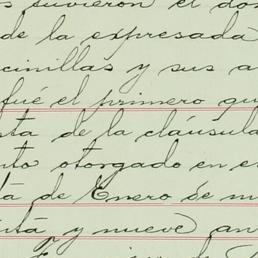 s tuvieron el do
de la expresada
cinillas y sus a
fué el primero qu
sta de la cláusula
nto otorgado en e
ta de Enero de m
nta y nueve an